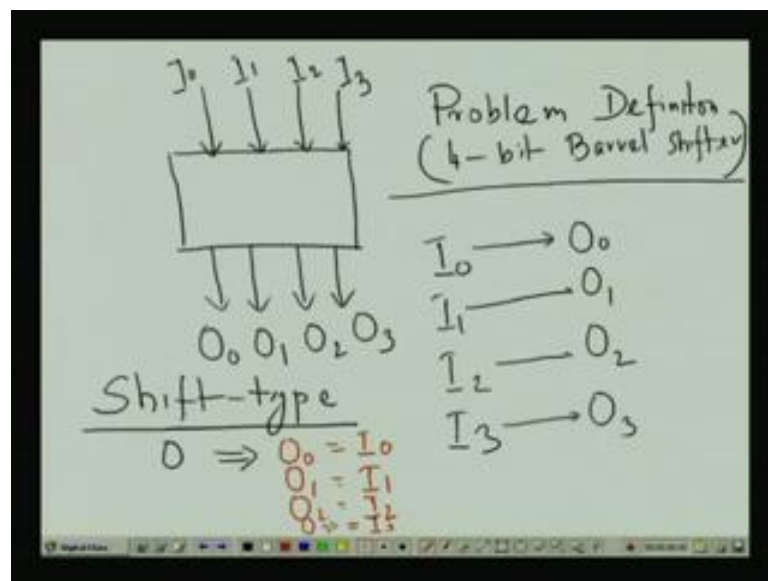 I0 I1 I2 I3
Problem Definiton
(4-bit Barrel Shifter)
I0 → O0
I1 — O1
I2 — O2
I3 → O3
O0 O1 O2 O3
Shift-type
0 ⇒ O0 = I0
O1 = I1
O2 = I2
O3 = I3